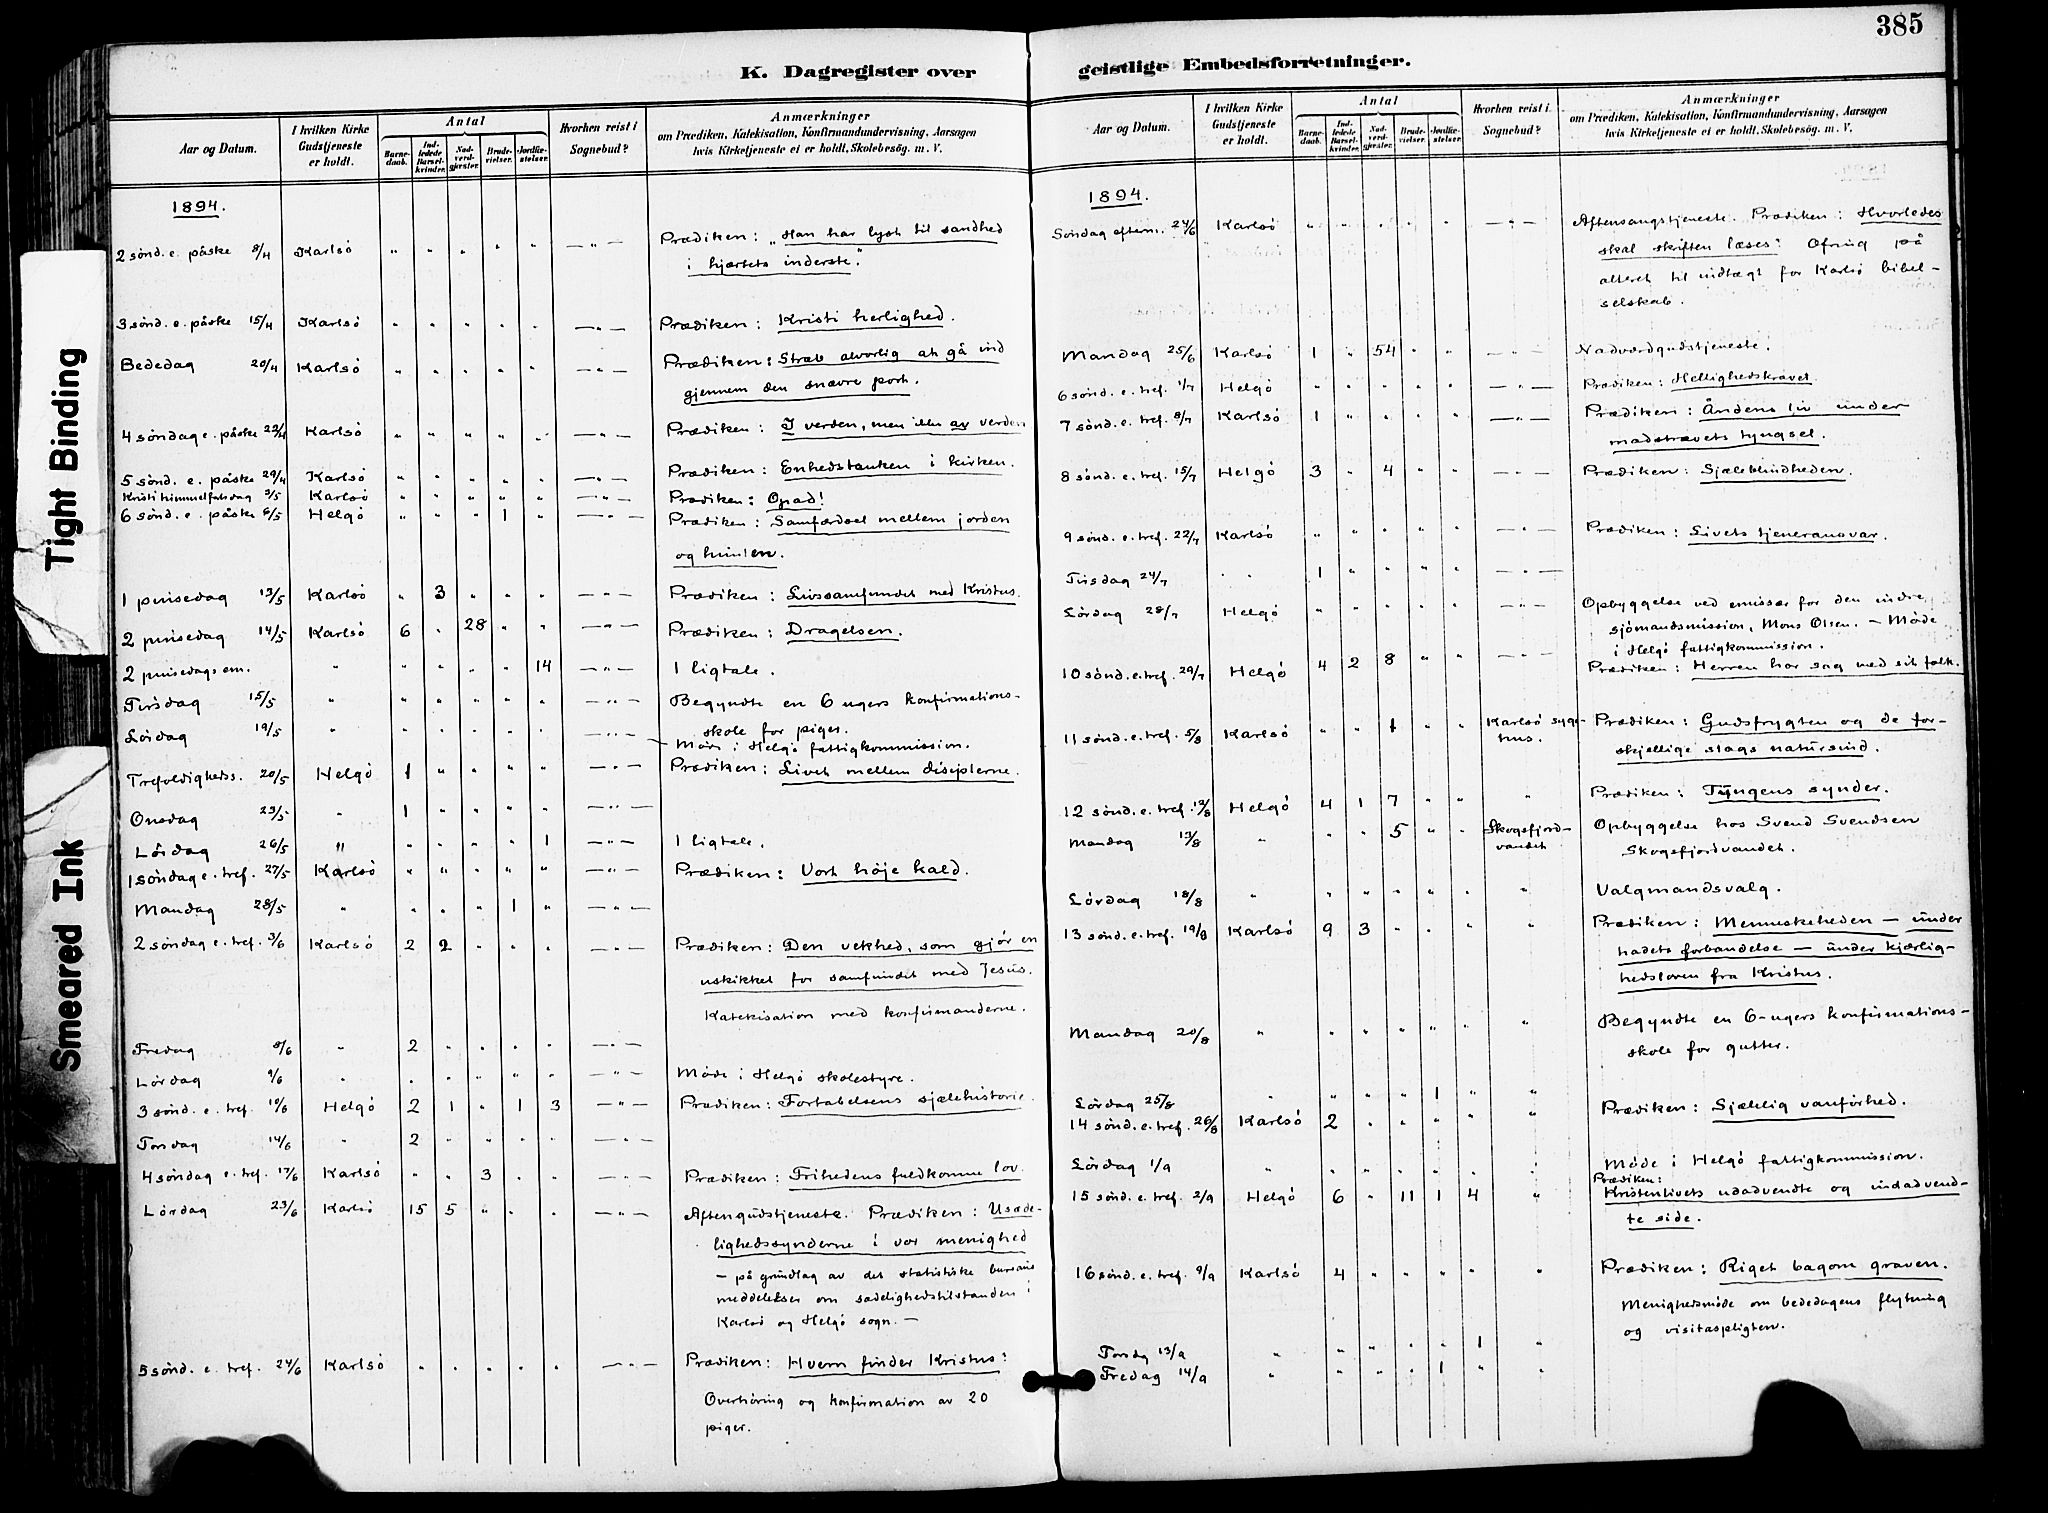 385
K. Dagregister over
geistlige Embedsforretninger.
Tight Binding
Smeared Ink
Aar og Datum.
I hvilken Kirke Gudstjeneste er holdt.
Antal
Barnedaab.
Indledede Barselkvinder.
Nadverdgjester.
Brudevielser.
Jordfæstelser.
Hvorhen reist i Sognebud?
Anmærkninger
om Prædiken, Katekisation, Konfirmandundervisning, Aarsagen
hvis Kirketjeneste ei er holdt, Skolebesøg. m. V.
1894.
2 sønd. e. påske 8/4 Karlsö " " " " " —"— Prædiken: „Han har lyst til sandhed
i hjærtets inderste".
3 sønd. e. påske 15/4 Karlsö " " " " " —"— Prædiken: Kristi herlighed.
Bededag 20/4 Karlsö " " " " " —"— Prædiken: Stræb alvorlig at gå ind
gjennem den snævre port.
4 söndag e. påske 22/4 Karlsö " " " " " —"— Prædiken: I verden, men ikke av verden
5 sønd. e. påske 29/4 Karlsö " " " " " —"— Prædiken: Enhedstanken i kirken.
Kristi himmelfartsdag 3/5 Karlsö " " " " " —"— Prædiken: Opad!
6 sønd. e. påske 6/5 Helgö " " " 1 " —"— Prædiken: Samfærdsel mellem jorden
og himlen.
1 pinsedag 13/5 Karlsö " 3 " " " —"— Prædiken: Livssamfundet med Kristus.
2 pinsedag 14/5 Karlsö 6 " 28 " " —"— Prædiken: Dragelsen.
2 pinsedags em. " " " " " 14 —"— 1 ligtale.
Tirsdag 15/5 " " " " " " —"— Begyndte en 6 ugers konfirmations-
skole for piger.
Lördag 19/5 " " " " " " —"— Möde i Helgö fattigkommission.
Trefoldigheds. 20/5 Helgö 1 " " " " —"— Prædiken: Livet mellem disciplerne.
Onsdag 23/5 " 1 " " " " —"—
Lördag 26/5 " " " " " 1 —"— 1 ligtale.
1 söndag e. tref. 27/5 Karlsö " " " " " —"— Prædiken: Vort höje kald.
Mandag 28/5 " " " " 1 " —"—
2 söndag e. tref. 3/6 Karlsö 2 2 " " " —"— Prædiken: Den vekhed, som gjör en
uskikket for samfundet med Jesus.
Katekisation med konfirmanderne.
Fredag 8/6 " 2 " " " " —"—
Lördag 9/6 " " " " " " —"— Möde i Helgö skolestyre.
3 sønd. e. tref. 10/6 Helgö 2 1 " 1 3 —"— Prædiken: Fortabelsens sjælehistorie.
Torsdag 14/6 " 2 " " " " —"—
4 söndag e. tref. 17/6 Karlsö " " 3 " " —"— Prædiken: Frihedens fuldkomne lov.
Lördag 23/6 Karlsö 15 5 " " " —"— Aftengudstjeneste. Prædiken: Usæde-
lighedssynderne i vor menighed
— på grundlag av det statistiske
meddelelser om sædelighedstilstanden i
Karlsö og Helgö sogn. —
5 sønd. e. tref. 24/6 Karlsö " " " " " —"— Prædiken: Hvem finder Kristus?
Overhöring og konfirmation av 20
piger.
Aar og Datum.
I hvilken Kirke Gudstjeneste er holdt.
Antal
Barnedaab.
Indledede Barselkvinder.
Nadverdgjester.
Brudevielser.
Jordfæstelser.
Hvorhen reist i Sognebud?
Anmærkninger
om Prædiken, Katekisation, Konfirmandundervisning, Aarsagen
hvis Kirketjeneste ei er holdt, Skolebesøg. m. V.
1894.
Søndag eftem. 24/6 Karlsö " " " " " —"— Aftensangstjeneste. Prædiken: Hvorledes
skal skriften læses? Ofring på
alteret til indtægt for Karlsö bibel-
selskab.
Mandag 25/6 Karlsö 1 " 54 " " —"— Nadverdgudstjeneste.
6 sønd. e. tref. 1/7 Helgö " " " " " —"— Prædiken: Hellighedskravet.
7 sønd. e. tref. 8/7 Karlsö 1 " " " " —"— Prædiken: Åndens liv under
madstrævets tyngsel.
8 sønd. e. tref. 15/7 Helgö 3 " 4 " " —"— Prædiken: Sjæleblindheden.
9 sønd. e. tref. 22/7 Karlsö " " " " " —"— Prædiken: Livets tjeneransvar.
Tirsdag 24/7 " " 1 " " " " —"—
Lördag 28/7 Helgö " " " " " —"— Opbyggelse ved emissær for den indre
sjömandsmission, Mons Olsen. — Möde
i Helgö fattigkommission.
10 sönd. e. tref. 29/7 Helgö 4 2 8 " " —"— Prædiken: Herren har sag med sit folk.
11 sönd. e. tref. 5/8 Karlsö " " 1 " " Karlsö syge-
hus. Prædiken: Gudsfrygten og de for-
skjellige slags natursind.
12 sönd. e. tref. 12/8 Helgö 4 1 7 " " " Prædiken: Tungens synder.
Mandag 13/8 " " " 5 " " Skogsfjord-
vandet Opbyggelse hos Svend Svendsen
Skogsfjordvandet.
Lördag 18/8 " " " " " " " Valgmandsvalg.
13 sönd. e. tref. 19/8 Karlsö 9 3 " " " " Prædiken: Menneskeheden — under
hadets forbandelse — under kjærlig-
hedsloven fra Kristus.
Mandag 20/8 " " " " " " " Begyndte en 6-ugers konfirmations-
skole for gutter.
Lördag 25/8 " " " 1 " "
14 sönd. e. tref. 26/8 Karlsö 2 " " " " " Prædiken: Sjælelig vanförhed.
Lördag 1/9 " " " " " " " Möde i Helgö fattigkommission.
15 sönd. e. tref. 2/9 Helgö 6 " 11 1 4 " Prædiken:
Kristenlivets udadvendte og indadvend-
te side.
16 sönd. e. tref. 9/9 Karlsö 4 " " " " " Prædiken: Riget bagom graven.
Menighedsmöde om bededagens flytning
og visitaspligten.
Torsdg 13/9 " " " " " 1 "
Fredag 14/9 " " " " 1 " "